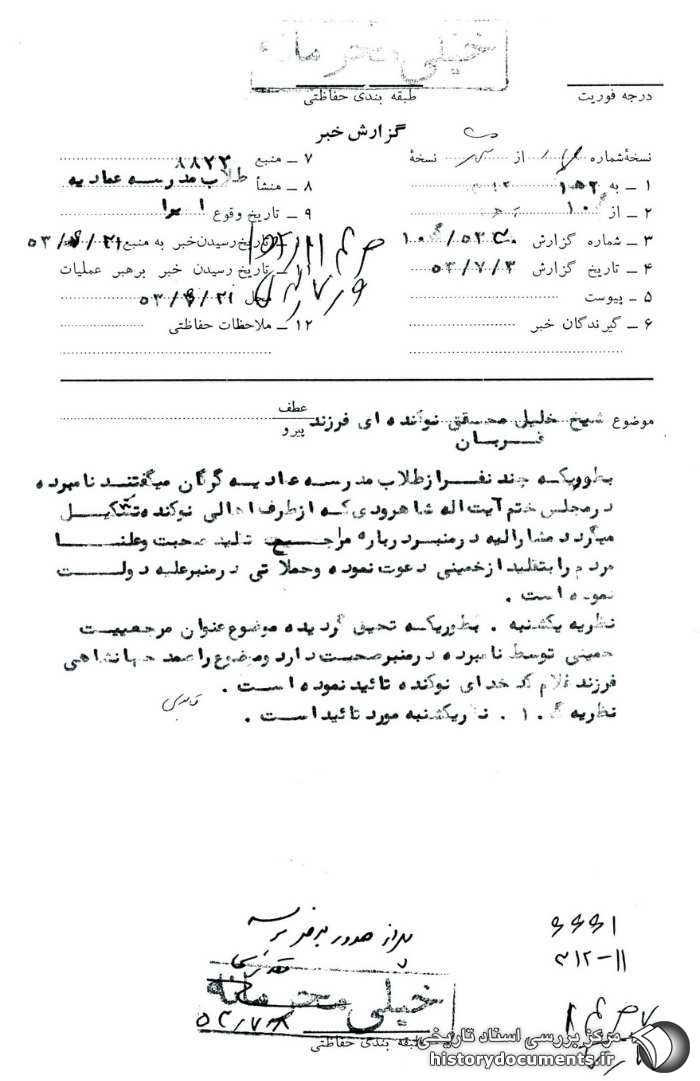 خیلی محرمانه
طبقه بندی حفاظتی
درجه فوریت
گزارش خبر
نسخهٔ شماره از نسخهٔ
۱ ـ به
۲ ـ از
۳ ـ شماره گزارش
۴ ـ تاریخ گزارش ۵۳/۷/۳
۵ ـ پیوست
۶ ـ گیرندگان خبر
۷ ـ منبع ۸۸۲۳
۸ ـ منشأ طلاب مدرسه عمادیه
۹ ـ تاریخ وقوع
تاریخ رسیدن خبر به منبع
۱۱ ـ تاریخ رسیدن خبر برهبر عملیات
محل
۱۲ ـ ملاحظات حفاظتی
موضوع شیخ خلیل محققی نوکنده ای فرزند
عطف
پیرو
قربان
بطوریکه چند نفر از طلاب مدرسه عمادیه گرگان میگفتند نامبرده
در مجلس ختم آیت اله شاهرودی که از طرف اهالی نوکنده تشکیل
میگردد مشارالیه در منبر درباره مراجع تقلید صحبت و علنا
مردم را بتقلید از خمینی دعوت نموده و حملاتی در منبر علیه دولت
نموده است .
نظریه یکشنبه . بطوریکه تحقیق گردیده موضوع عنوان مرجعیت
خمینی توسط نامبرده در منبر صحت دارد و موضوع را صمد جهانشاهی
فرزند غلام کدخدای نوکنده تائید نموده است .
نظریه . نظر یکشنبه مورد تائید است .
خیلی محرمانه
طبقه بندی حفاظتی
مرکز بررسی اسناد تاریخی
historydocuments.ir